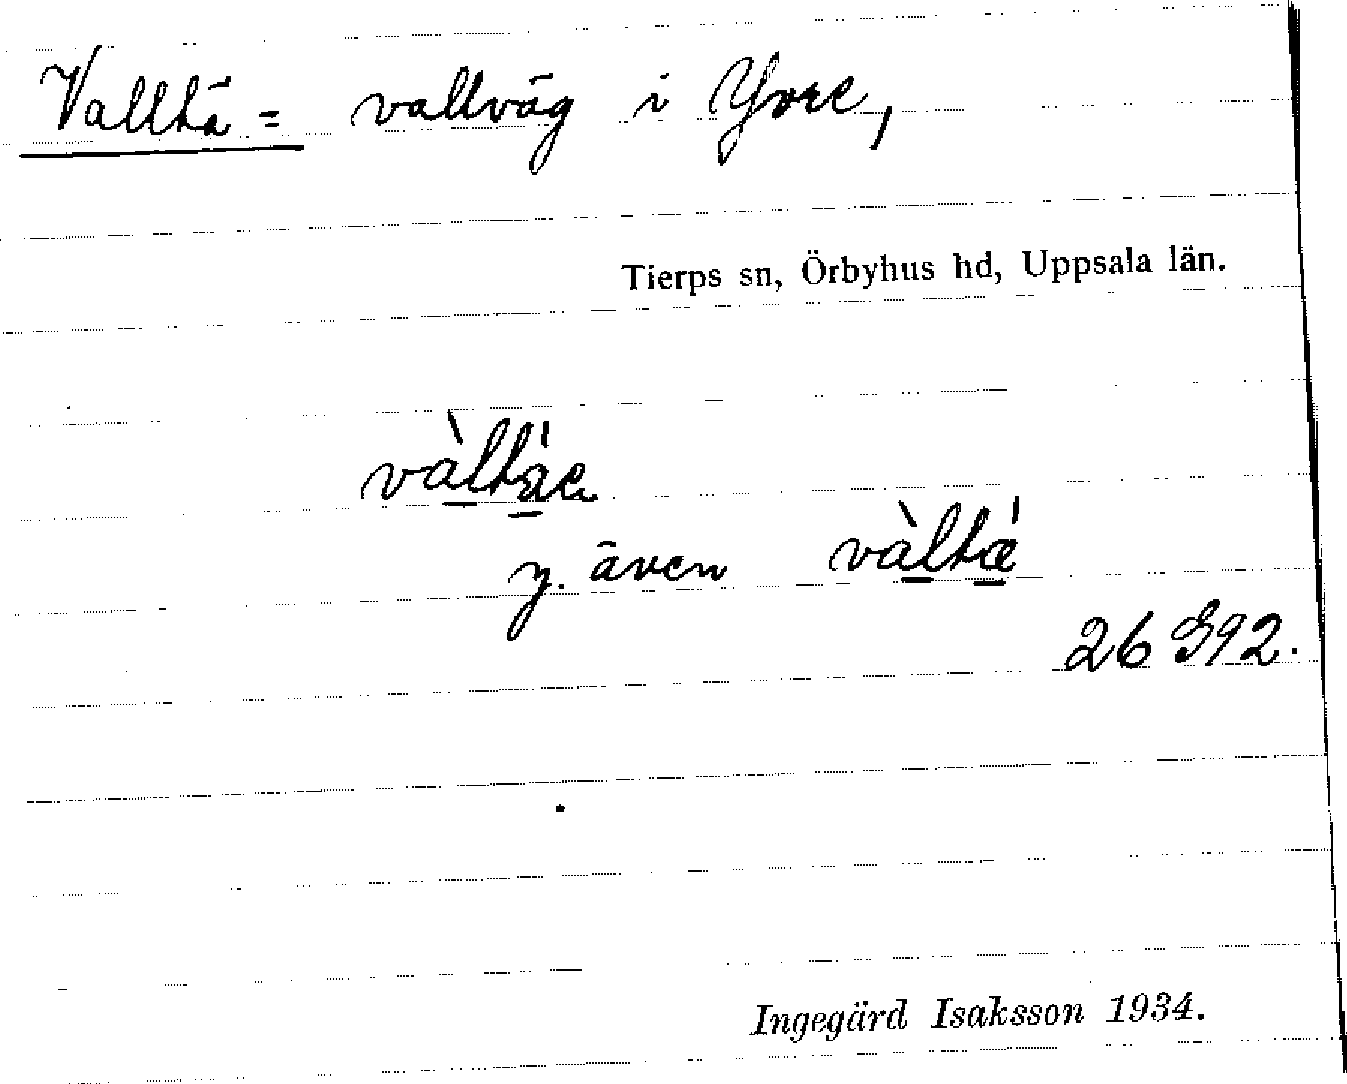 Valltä = vallväg i Yvre,
Tierps sn, Örbyhus hd, Uppsala län.
y. även
26 392.
Ingegärd Isaksson 1934.